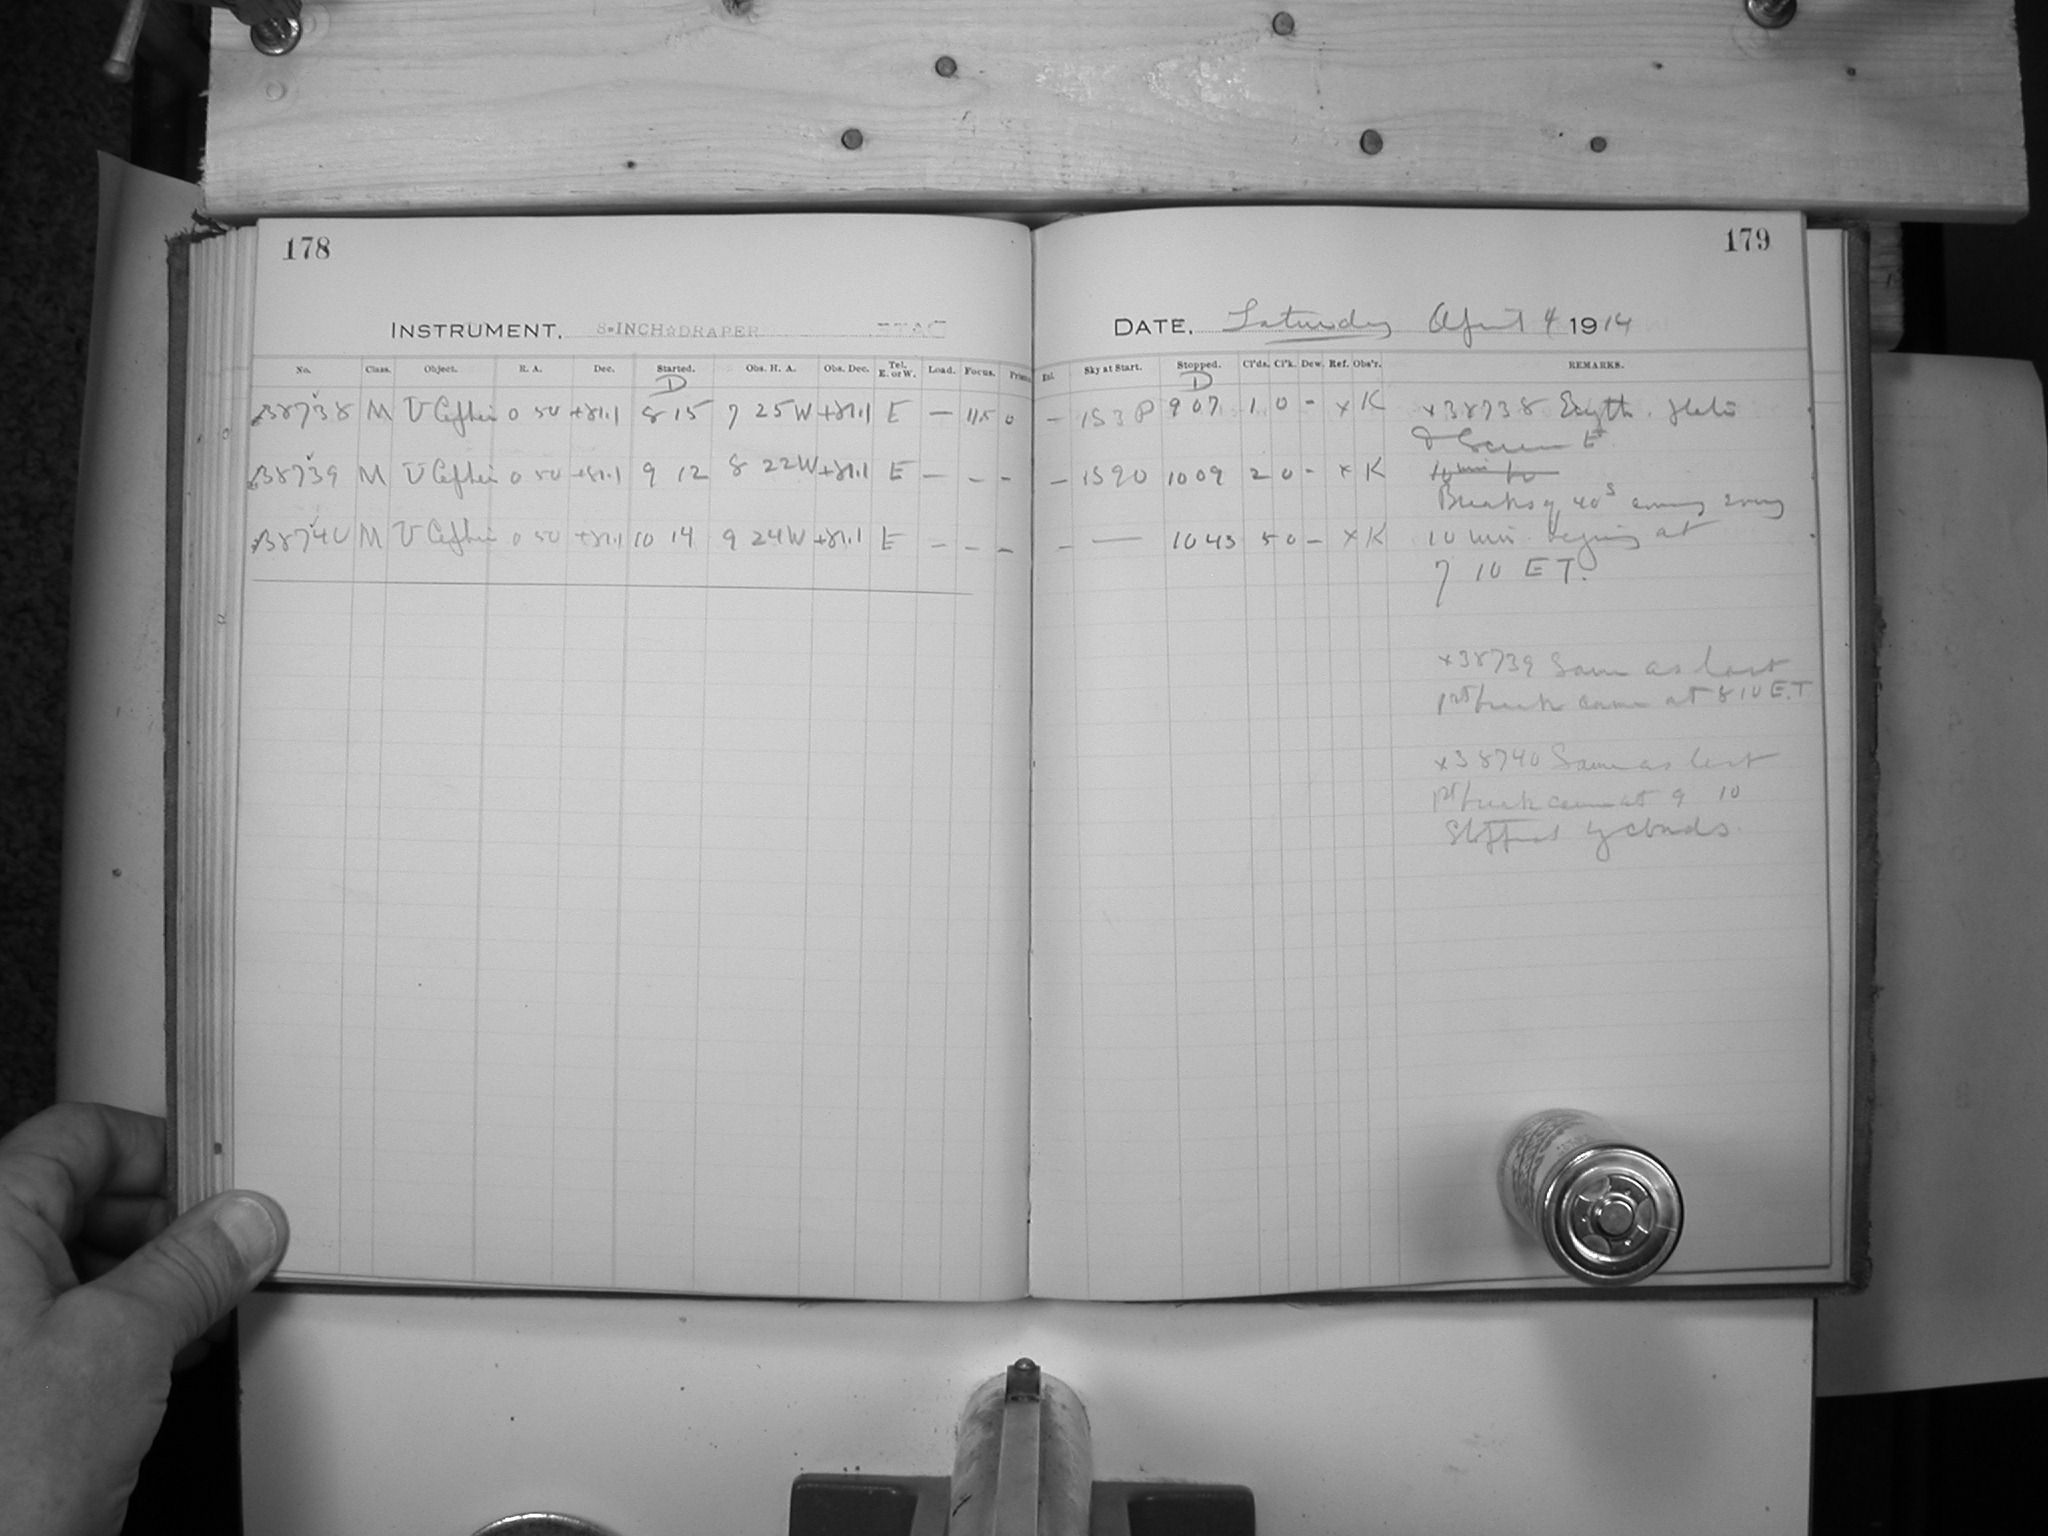 178
179
INSTRUMENT. 8-INCH DRAPER
DATE. Saturday April 4 1914
No. Class. Object. R. A. Dec. Started. Obs. H. A. Obs. Dec. Tel. E. or W. Load. Focus. Sky at Start. Stopped. Cl'ds. Cl'k. Dew. Ref. Obs'r. REMARKS.
D D
38738 M U Cephei 0 50 +81.1 8 15 7 25W +81.1 E — 115 0 — 1S3P 9 07 1 0 - x K x38738 Eryth. plate
& Screen E.
38739 M U Cephei 0 50 +81.1 9 12 8 22W +81.1 E — - - — 1S90 10 09 2 0 - x K 10 min to
Breaks of 40s every
38740 M U Cephei 0 50 +81.1 10 14 9 24W +81.1 E - - - - — 10 43 5 0 - x K 10 min. begins at
7 10 E T.
x38739 Same as last
1st break came at 8 10 E.T.
x38740 Same as last
1st break came at 9 10
Stopped by clouds.